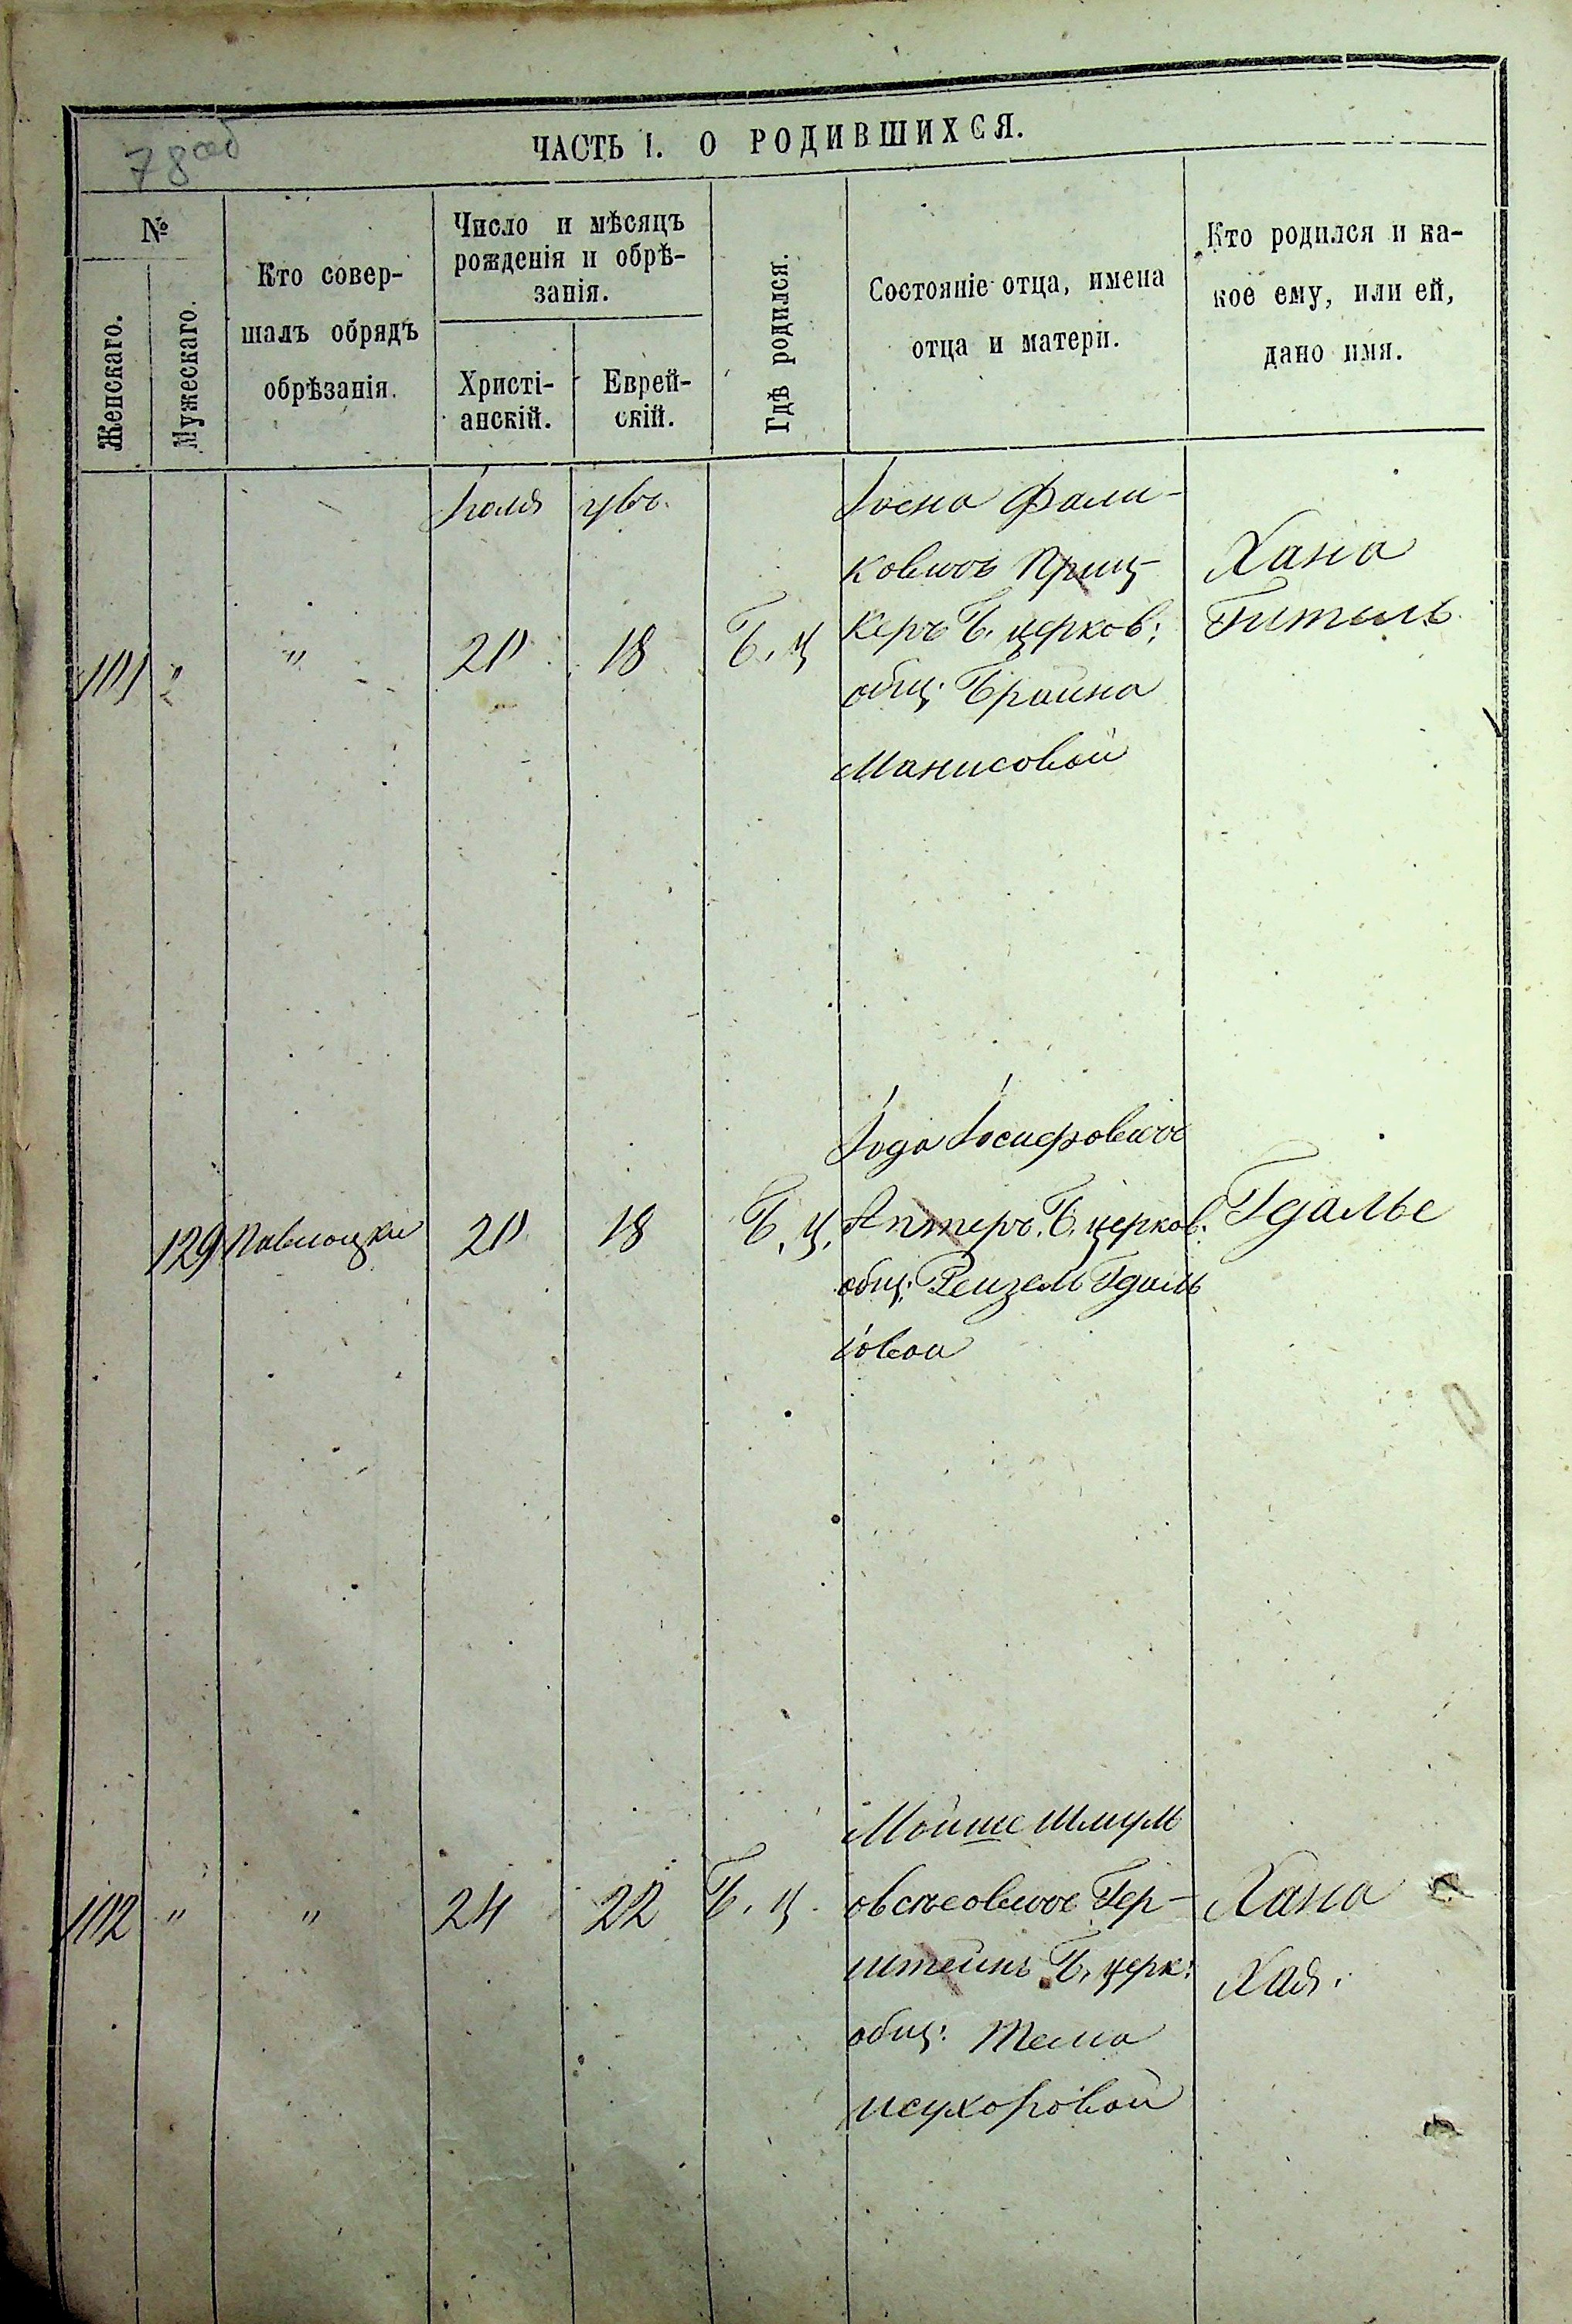 78 об
ЧАСТЬ I. О РОДИВШИХСЯ.
№
Женскаго.
Мужескаго.
Кто совер-
шалъ обрядъ
обрѣзанія.
Число и мѣсяцъ
рожденія и обрѣ-
занія.
Христі-
анскій.
Еврей-
скій.
Гдѣ родился.
Состояніе отца, имена
отца и матери.
Кто родился и ка-
кое ему, или ей,
дано имя.
Іюля
101 " " 20 18 Б. Ц
Іосна Фали-
ковичъ Приц-
керъ Б. церков:
общ: Брайна
Манисовой
Хана
Гитель
129 Павлоцкій 20 18 Б. Ц.
Іода Іосифовичъ
Аптеръ Б. церков.
общ: Рейзель Гдаль
іовой
Гдалье
102 " " 24 22 Б. Ц.
Мойше Шмуль
Гер-
штейнъ Б. церк:
общ: Тема
исухоровой
Хана
Хая.